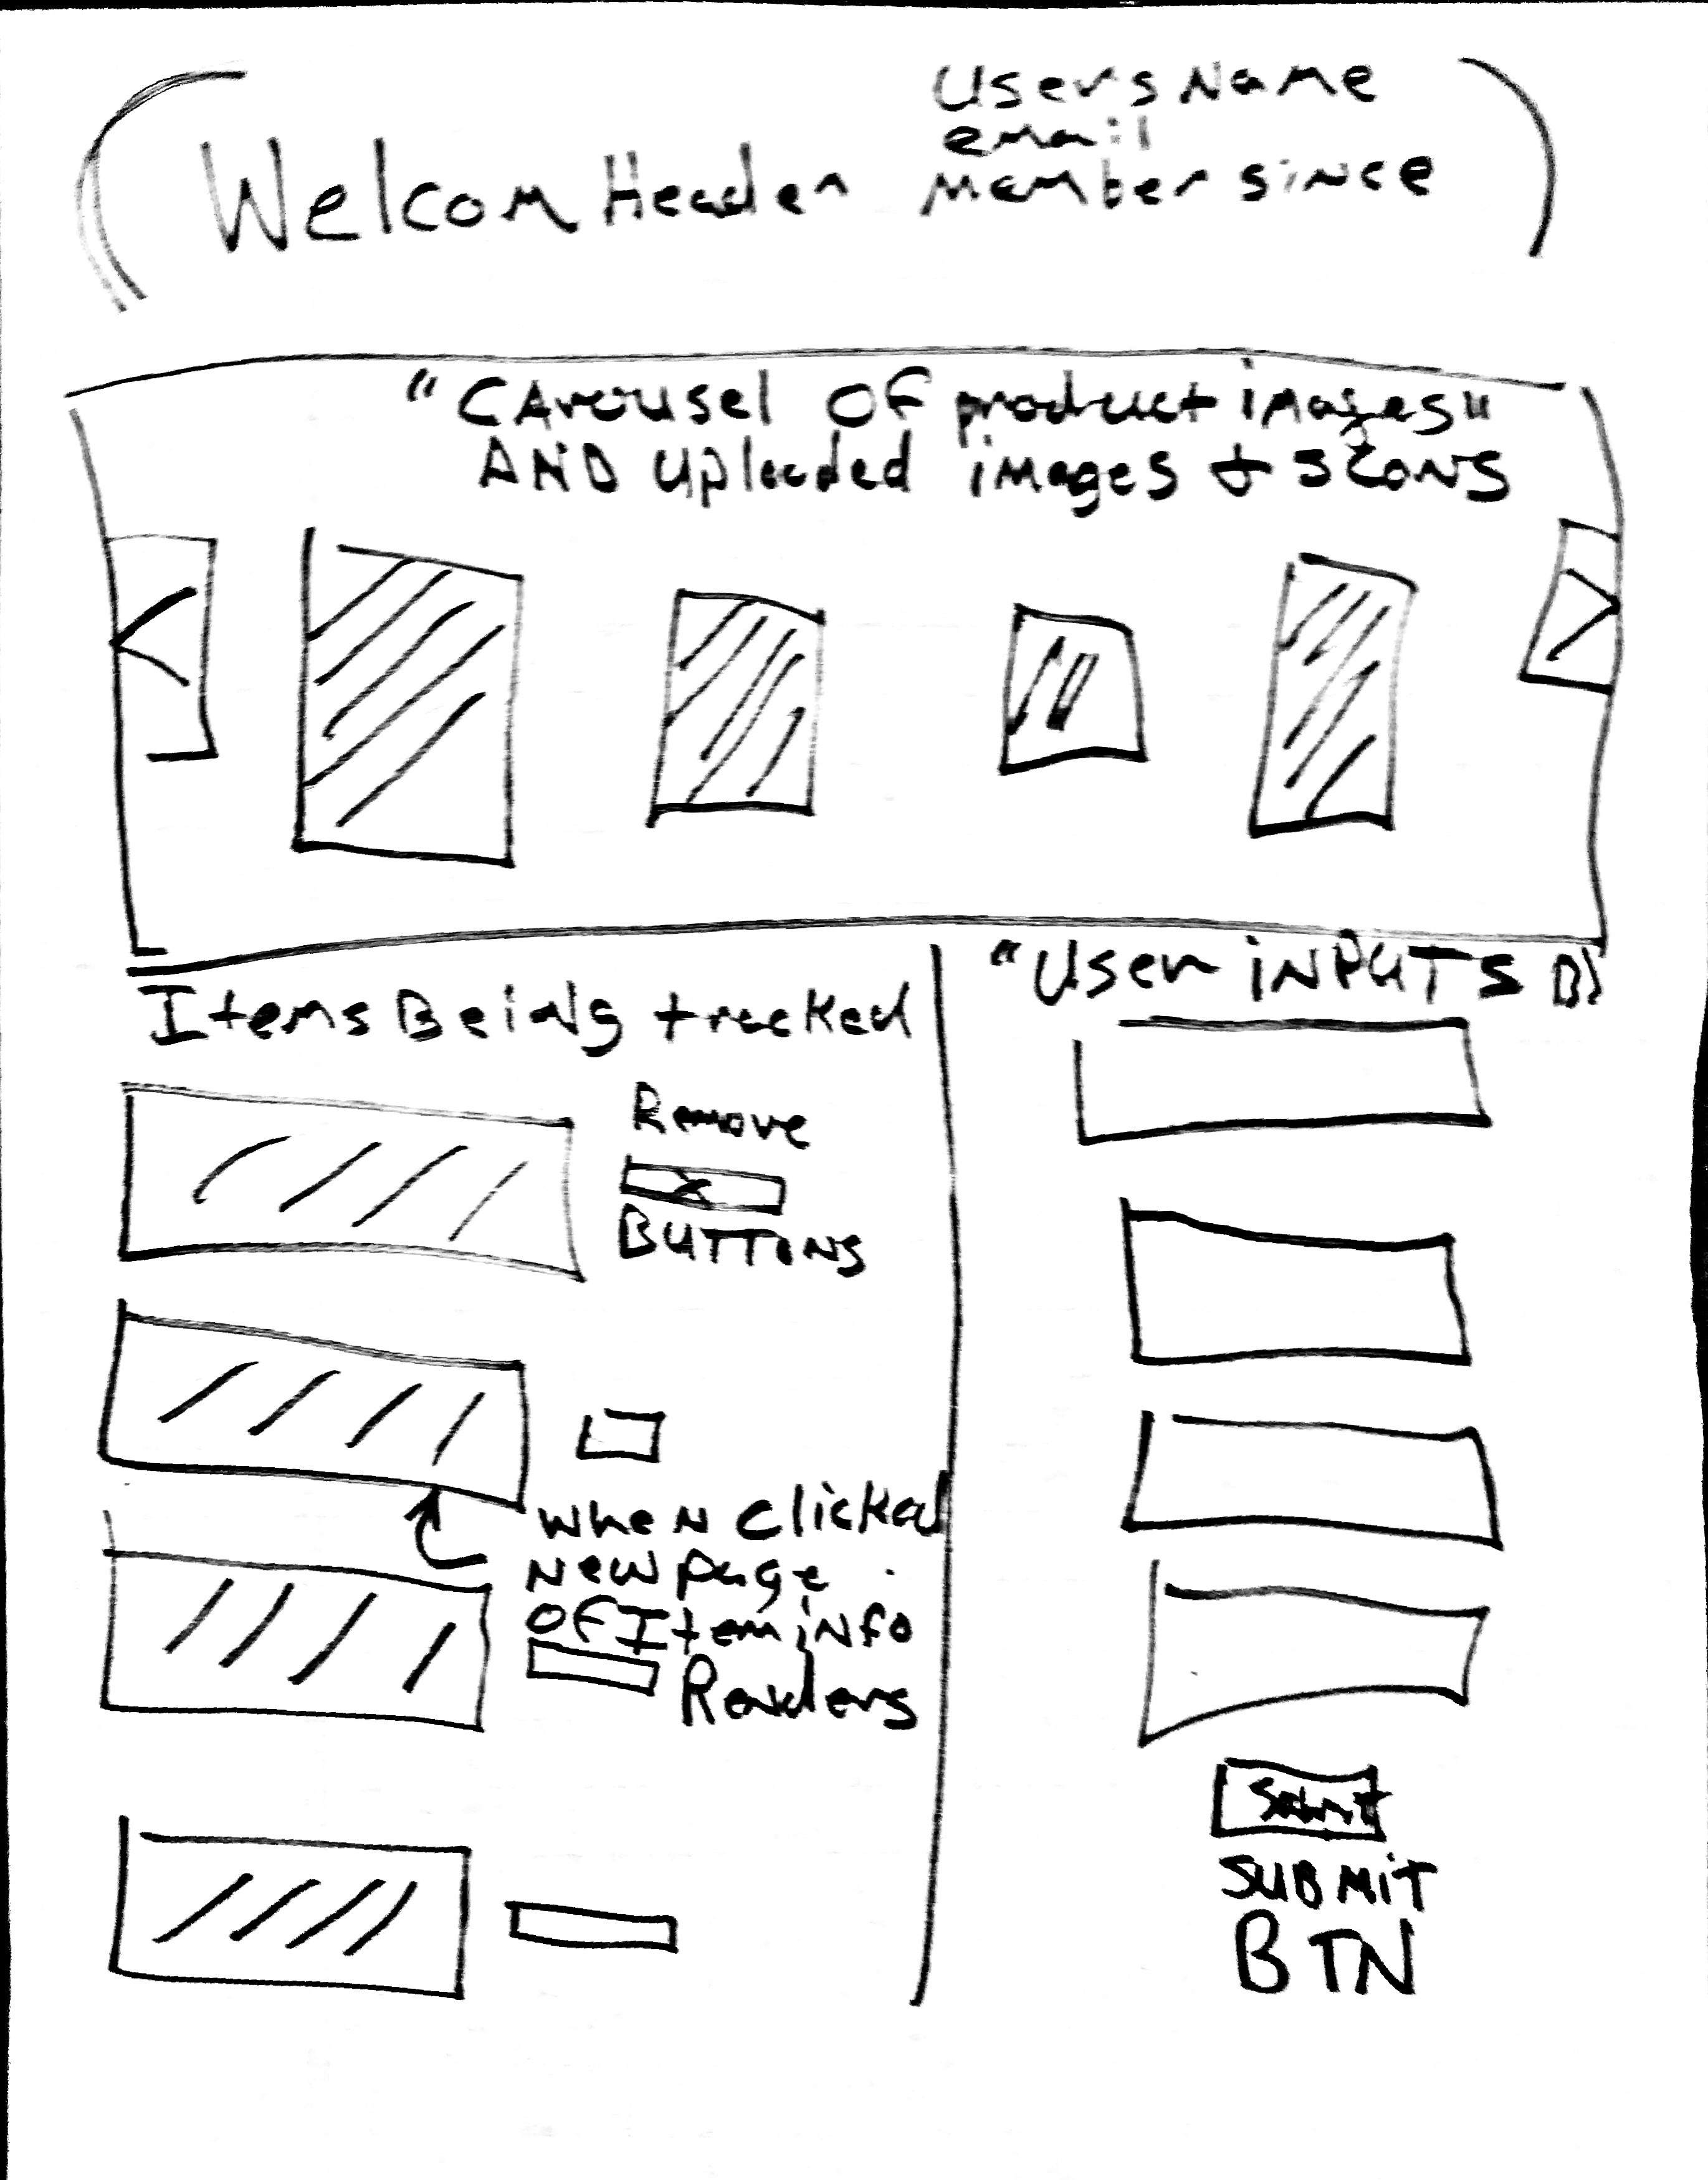 Welcom Header
Users Name
email
Member since
"Carousel of product images"
AND uploaded images & Icons
Items Being tracked
Remove
x
BUTTONS
when clicked
New page
of Item info
Renders
"User iNPUTS
Submit
SUBMIT
BTN